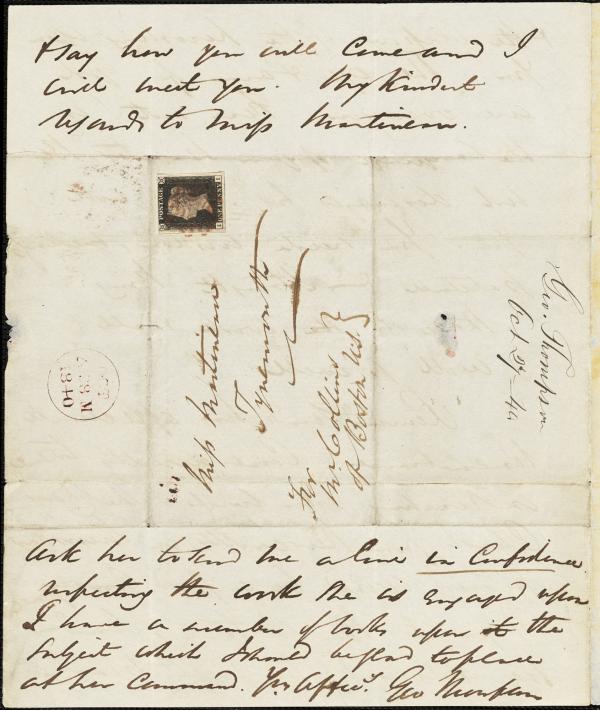 & say how you will come and I
will meet you. My kindest
regards to Miss Martineau.
POSTAGE
ONE PENNY
Miss Martineau
Tynemouth
For
Mr Collins
of Boston U.S.
Geo. Thompson
Oct. 27 - 40
1840
Ask her to send me a line in confidence
respecting the work she is engaged upon
I have a number of books upon the
subject which I should be glad to place
at her command. Yrs affecy. Geo Thompson